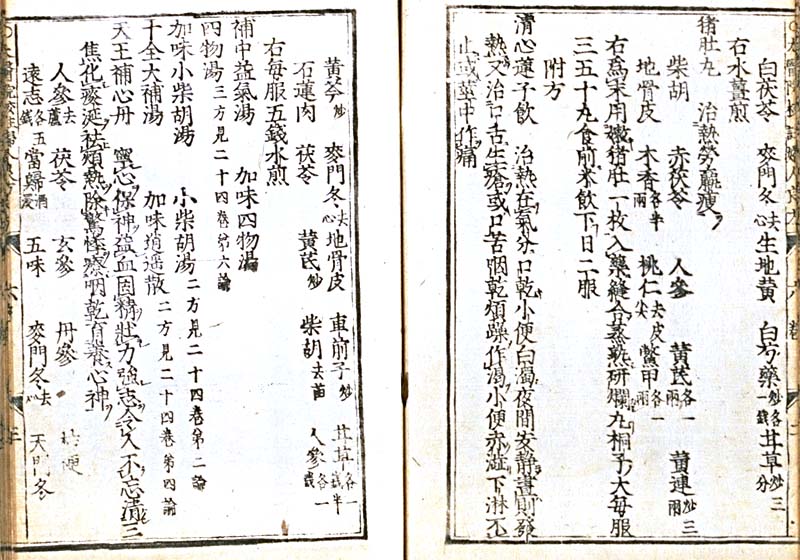 白茯苓 麥門冬去心 生地黃 白芍藥炒各一錢 甘草炒三分
右水薑煎
猪肚丸 治熱勞羸瘦
柴胡 赤茯苓 人參 黃芪各一兩 黃連炒三兩
地骨皮 木香各半兩 桃仁去皮尖 鱉甲各一兩
右爲末用嫩猪肚一枚入藥縫合蒸熟研爛丸桐子大每服
三五十丸食前米飲下日二服
附方
清心蓮子飲 治熱在氣分口乾小便白濁夜間安靜晝則發
熱又治口舌生瘡或口苦咽乾煩躁作渴小便赤澁下淋不
止或莖中作痛
黃芩炒 麥門冬去心 地骨皮 車前子炒 甘草各一錢半
石蓮肉 茯苓 黃芪炒 柴胡去苗 人參各一錢
右每服五錢水煎
補中益氣湯 加味四物湯
四物湯三方見二十四卷第六論
加味小柴胡湯 小柴胡湯二方見二十四卷第二論
十全大補湯 加味逍遥散二方見二十四卷第四論
天王補心丹 寧心保神益血固精壯力強志令人不忘清三
焦化痰涎袪煩熱除驚悸療咽乾育養心神
人參去蘆 茯苓 玄參 丹參 桔梗
遠志各五錢 當歸酒浸 五味 麥門冬去心 天門冬